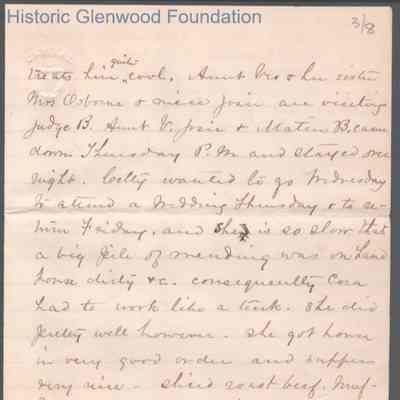 Historic Glenwood Foundation
3/8
treats him quite cool. Aunt Vec & her sister
Mrs Osborne & niece Josie are visiting
Judge B. Aunt V. Josie & Mater B. came
down Thursday P.M. and stayed over
night. Cetty wanted to go Wednesday
to attend a Wedding Thursday & to re-
turn Friday, and she is so slow that
a big pile of mending was on hand
house dirty &c. consequently Cora
had to work like a turk. She did
pretty well however. She got house
in very good order and supper
very nice - sliced roast beef. Muf-